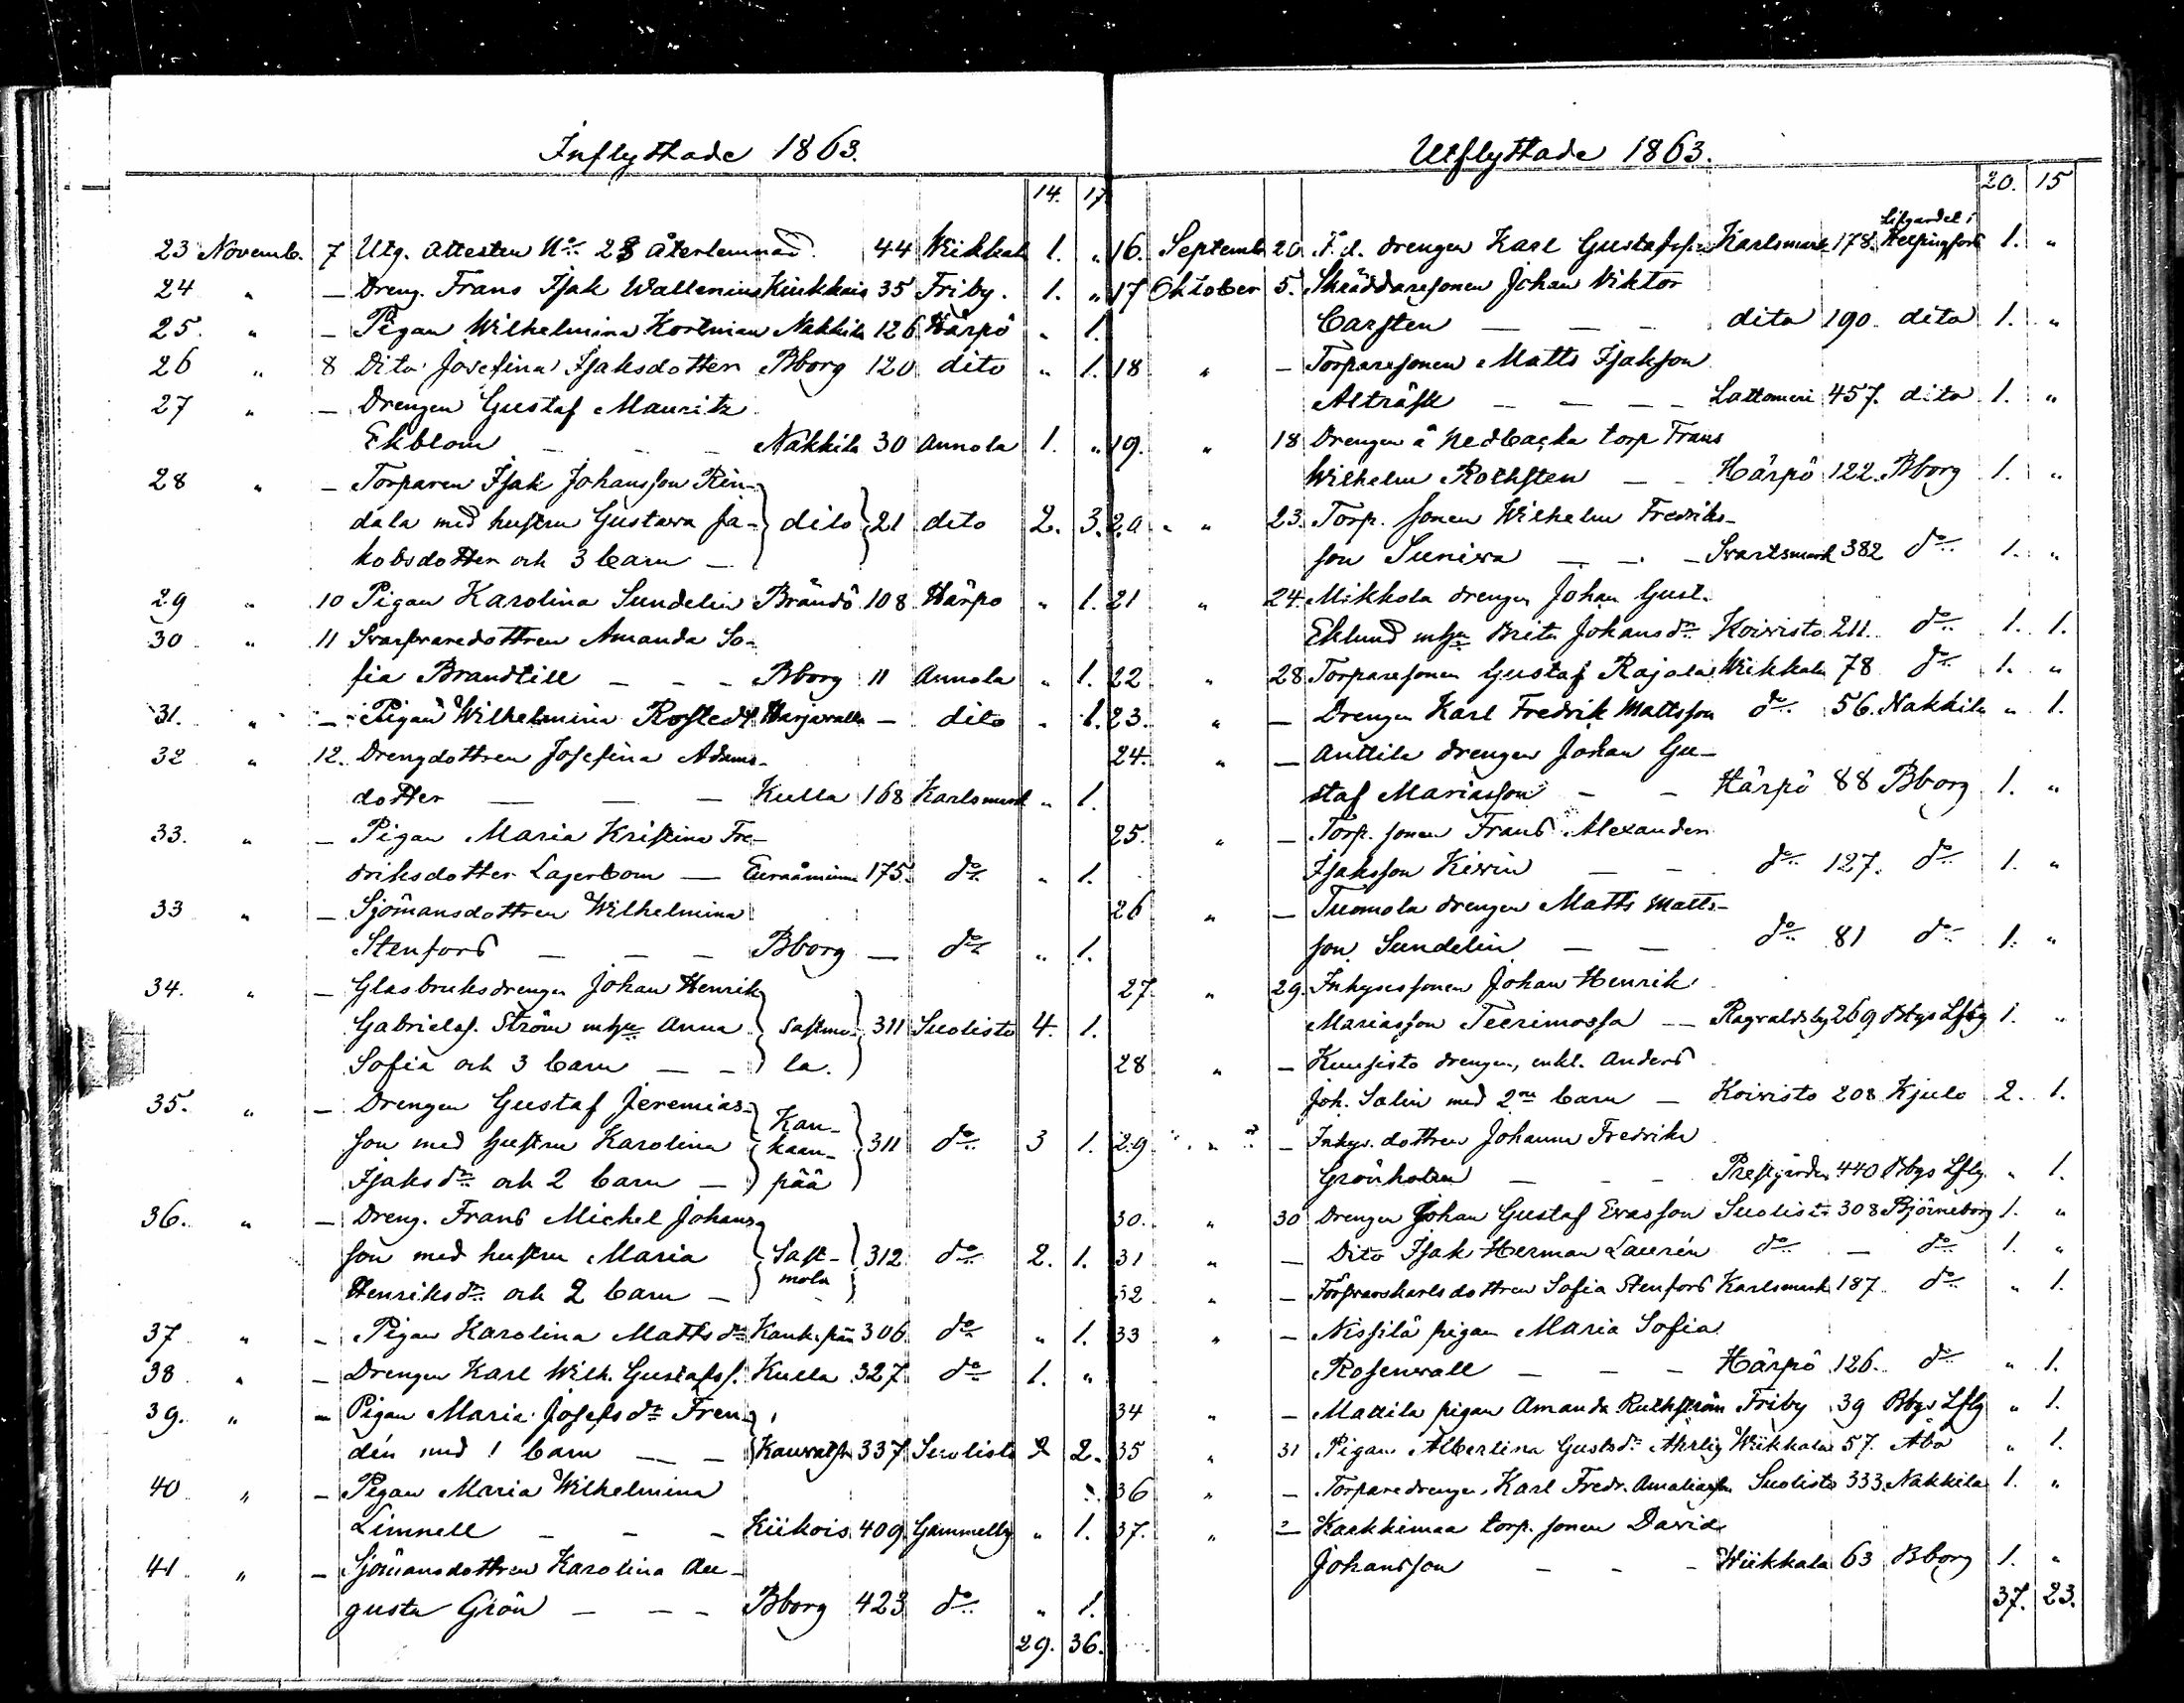 Inflyttade 1863.
14. 17
23 Novemb. 7 Utg. attesten No. 28 återlemnad. 44 Wiikkala 1. "
24 " — Dreng. Frans Isak Wallenius Kiukkais 35 Friby. 1. "
25. " — Pigan Wilhelmina Kortman Nakkila 126 Härpö " 1.
26 " 8 Dito Josefina Isaksdotter Bborg 120 dito " 1.
27 " — Drengen Gustaf Mauritz
Ekblom — — — Nakkila 30 Annola 1. "
28 " — Torparen Isak Johansson Rin-
dala med hustru Gustava Ja- dito 21 dito 2. 3.
kobsdotter och 3 barn —
29 " 10 Pigan Karolina Sundelin Brändö 108 Härpö " 1.
30 " 11 Svarfvaredottren Amanda So-
fia Brandtill — — — Bborg 11 Annola " 1.
31. " — Pigan Wilhelmina Rostedt Harjavalta — dito " 1.
32 " 12. Drengdottren Josefina Adams-
dotter — — — Kulla 168 Karlsmark " 1.
33. " — Pigan Maria Kristina Fre-
driksdotter Lagerbom — Euraåminne 175. do " 1.
33 " — Sjömansdottren Wilhelmina
Stenfors — — — Bborg — do " 1.
34. " — Glasbruksdrengen Johan Henrik
Gabrielss. Ström mhu Anna Sastmo- 311 Suolisto 4. 1.
Sofia och 3 barn — — la.
35. " — Drengen Gustaf Jeremias- Kan-
son med hustru Karolina kaan- 311 do 3 1.
Isaksdr och 2 barn — pää
36. " — Dreng. Frans Michel Johans-
son med hustru Maria Sast- 312 do 2. 1.
Henriksdr och 2 barn — mola
37 " — Pigan Karolina Mattsdr Kank.pää 306 do " 1.
38 " — Drengen Karl Wilh. Gustafss. Kulla 327 do 1. "
39. " — Pigan Maria Josefsdr Fren-
dén med 1 barn — — 337 Suolisto 2.
40 " — Pigan Maria Wilhelmina
Limnell — — — Kiikois 409. Gammelby " 1.
41 " — Sjömansdottren Karolina Au-
gusta Grön — — — Bborg 423 do " 1.
29. 36.
Utflyttade 1863.
20. 15
Lifgardet i
16. Septemb. 20. F.d. drengen Karl Gustafsson Karlsmark 178. Helsingfors 1. "
17 Oktober 5. Skräddaresonen Johan Viktor
Carsten — — — dito 190. dito 1. "
18 " — Torparesonen Matts Isakson
Alträsk — — — — Lattomeri 457. dito 1. "
19. " 18 Drengen å Nedbacka torp Frans
Wilhelm Rothsten — — Härpö 122. Bborg 1. "
20 " 23. Torp. sonen Wilhelm Fredriks-
son Suniva — — — Svartsmark 382 do 1. "
21 " 24. Mikkola drengen Johan Gust.
Eklund mhu Brita Johansdr Koivisto 211. do 1. 1.
22 " 28 Torparesonen Gustaf Rajala Wiikkala 78 do 1. "
23. " — Drengen Karl Fredrik Mattsson do 56. Nakkila " 1.
24. " — Anttila drengen Johan Gu-
staf Mariasson — — Härpö 88 Bborg 1. "
25. " — Torp. sonen Frans Alexander
Isaksson Kivin — — do 127. do 1. "
26 " — Tuomola drengen Matts Matts-
son Sundelin — — do 81 do 1. "
27 " 29. Inhysessonen Johan Henrik
Mariasson Teerimossa — Ragvaldsby 269 Bbgs Lfg 1. "
28 " — Kuusisto drengen, enkl. Anders
Joh. Salin med 2ne barn — Koivisto 208 Kjulo 2. 1.
29 " — Inhys. dottren Johanna Fredrika
Grönholm — — — Prestgården 440 Bbgs Lflg. " 1.
30. " 30 Drengen Johan Gustaf Evasson Suolisto 308 Björneborg 1. "
31 " — Dito Isak Herman Laurén do — do 1. "
32 " — Försvarskarlsdottren Sofia Stenfors Karlsmark 187. do " 1.
33 " — Nissilä pigan Maria Sofia
Rosenvall — — — Härpö 126. do " 1.
34 " — Mattila pigan Amanda Ruthström Friby 39 Bbgs Lflg " 1.
35 " 31 Pigan Albertina Gustsdr Ahrlig Wiikkala 57. Åbo " 1.
36 " — Torparedrengen Karl Fredr. Amaliasson Suolisto 333. Nakkila 1. "
37. " — Karkkimaa torp. sonen David
Johansson — — — Wiikkala 63 Bborg 1. "
37. 23.